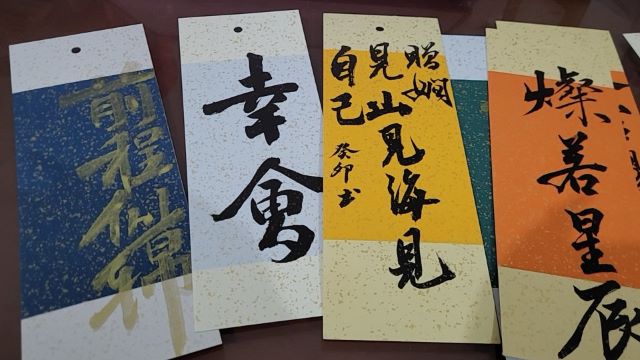 前程似锦
幸會
贈嫻
見山見海見
自己
癸卯书
燦若星辰